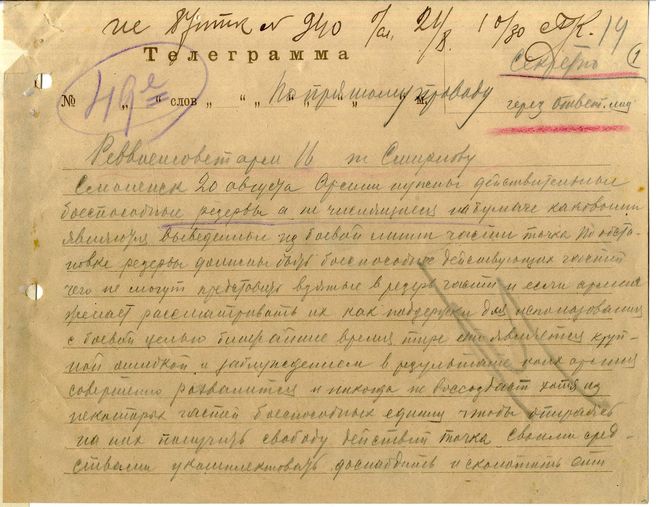 не № 940 21/8 10/30 19
Телеграмма
Секретно 1
№ 49е слов По прямому проводу
через ответ.
Реввоенсовет арм 16 т Смирнову
Смоленск 20 августа Армии нужны действительные
боеспособные резервы а не числящиеся на бумаге каковыми
являются выведенные из боевой линии части точка По обста
новке резервы должны быть боеспособные действующих частей
чего не могут представить взятые в резерв части и если армия
думает рассматривать их как поддержку для использования
с боевой целью ближайшее время тире это является круп
ной ошибкой и заблуждением в результате коих армия
совершенно развалится и никогда не воссоздаст хотя из
некоторых частей боеспособных единиц чтобы опираясь
на них получить свободу действий точка Своими сред-
ствами укомплектовать доснабдить и сколотить